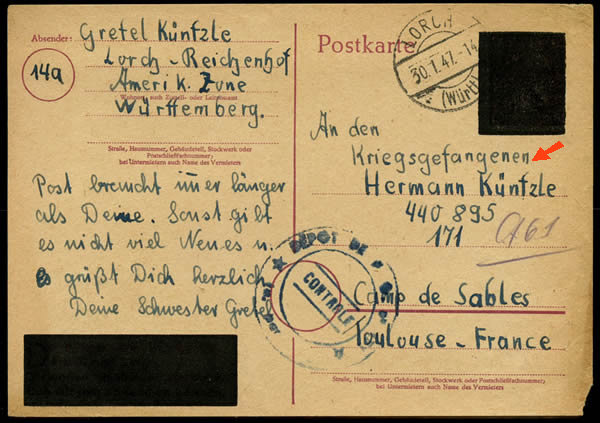 Absender: Gretel Küntzle
Lorch-Reichenhof
14a
Amerik. Zone
Wohnort, auch Zustell- oder Leitpostamt
Württemberg.
Straße, Hausnummer, Gebäudeteil, Stockwerk oder
Postschließfachnummer;
bei Untermietern auch Name des Vermieters
Post braucht im̅er länger
als Deine. Sonst gibt
es nicht viel Neues u.
es grüßt Dich herzlich
Deine Schwester Gretel
Postkarte
LORCH
30.1.47.-14
(Württ)
An den
Kriegsgefangenen
Hermann Küntzle
440 895
171
DEPOT DE
CONTROLE
Camp de Sables
Toulouse-France
Straße, Hausnummer, Gebäudeteil, Stockwerk oder Postschließfachnummer;
bei Untermietern auch Name des Vermieters